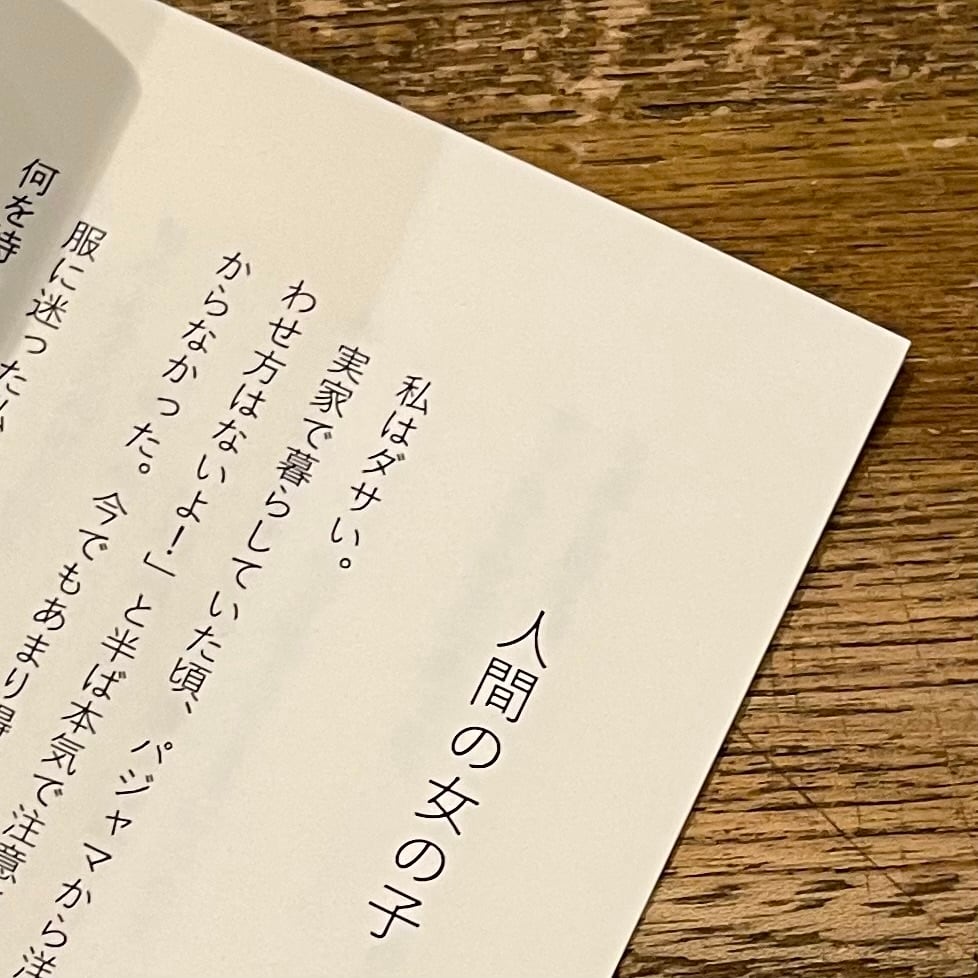 人間の女の子
私はダサい。
実家で暮らしていた頃、パジャマから洋
わせ方はないよ!」と半ば本気で注意
からなかった。今でもあまり
服に迷った
何を